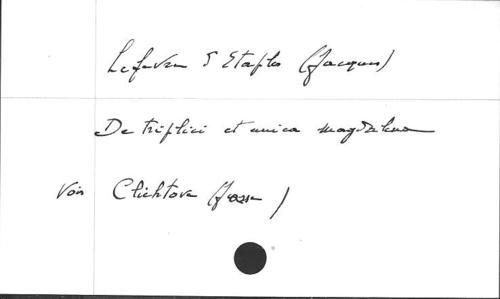 Lefevre d'Etaples (Jacques)
De triplici et unica magdalena
Voir Clichtove (Josse)